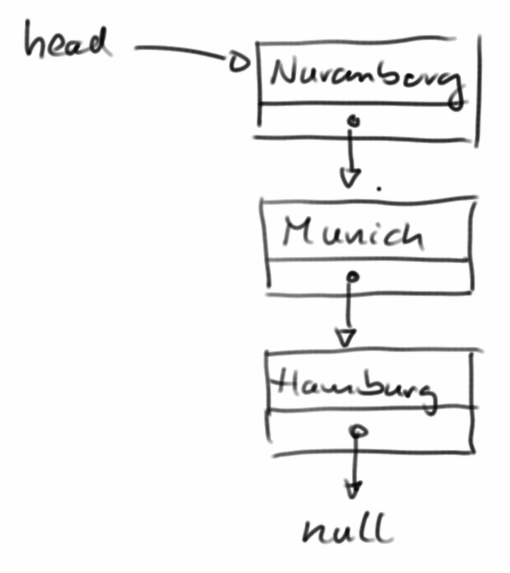 head
Nuremberg
Munich
Hamburg
null